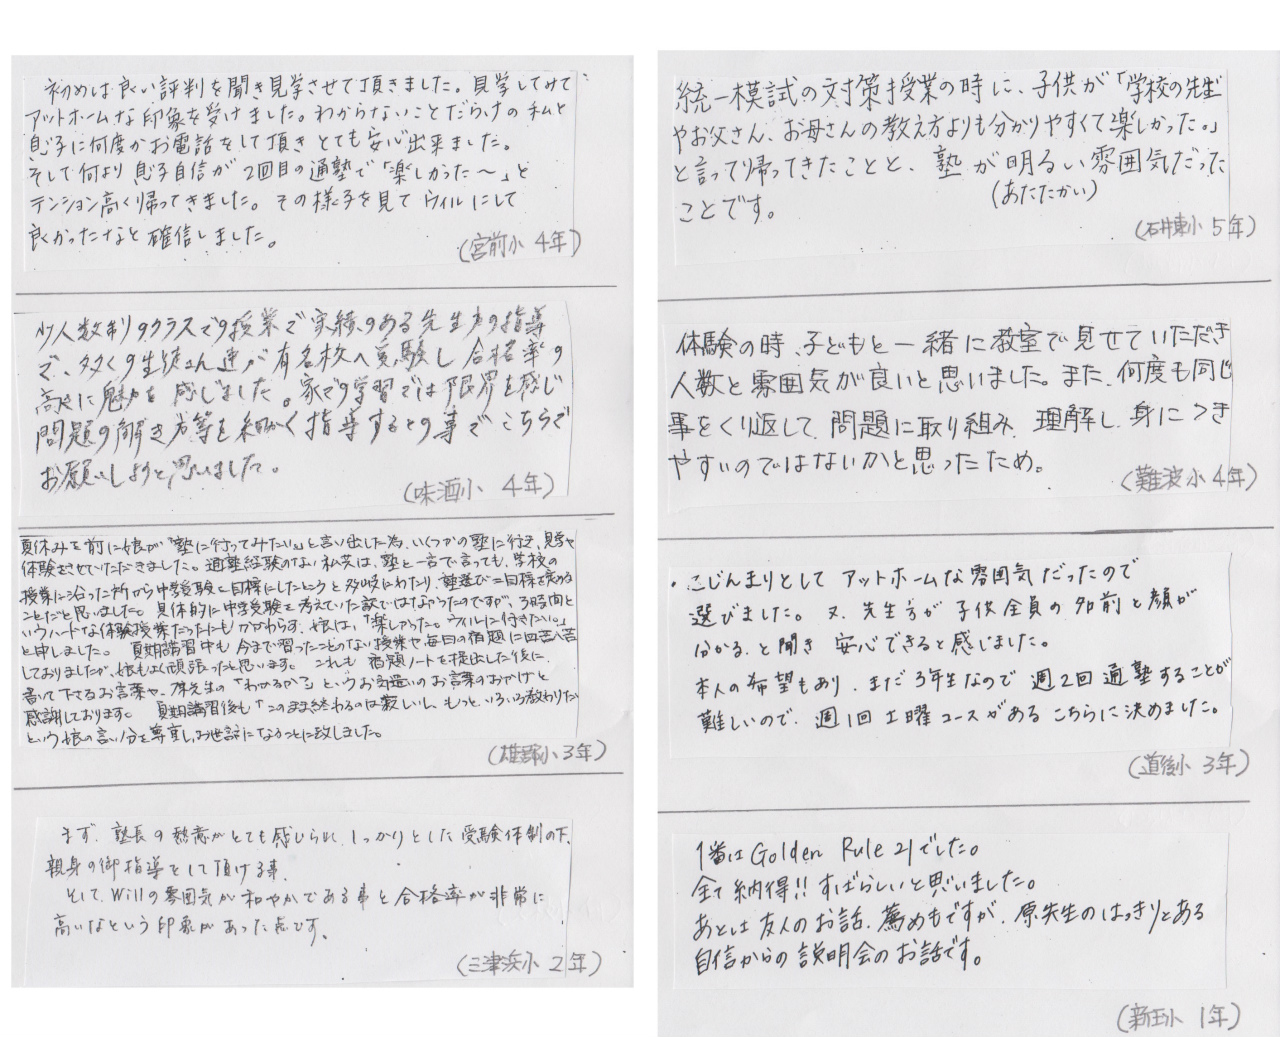 初めは良い評判を聞き見学させて頂きました。見学してみて
アットホームな印象を受けました。わからないことだらけの私と
息子に何度かお電話をして頂きとても安心出来ました。
そして何より息子自信が2回目の通塾で「楽しかった〜」と
テンション高く帰ってきました。その様子を見てウィルにして
良かったなと確信しました。
(宮前小 4年)
少人数制のクラスでの授業で実績のある先生方の指導
で、多くの生徒さん達が有名校へ受験し合格率の
高さに魅力を感じました。家での学習では限界を感じ
問題の解き方等を細かく指導するとの事でこちらで
お願いしようと思いました。
(味酒小 4年)
夏休みを前に娘が「塾に行ってみたい」と言い出した為、いくつかの塾に行き、見学や
体験をさせていただきました。通塾経験のない私共は、塾と一言で言っても、学校の
授業に沿った所から中学受験を目標にしたところと多岐にわたり、塾選び=目標を定める
ことだと思いました。具体的に中学受験を考えていた訳ではなかったのですが、3時間と
いうハードな体験授業だったにもかかわらず、娘は、「楽しかった。ウィルに行きたい。」
と申しました。夏期講習中も今まで習ったことのない授業や毎日の宿題に四苦八苦
しておりましたが、娘もよく頑張ったと思います。これも宿題ノートを提出した後に
書いて下さるお言葉や、先生の「わかるか?」というお気遣いのお言葉のおかげと
感謝しております。夏期講習後も「このまま終わるのは寂しいし、もっといろいろ教わりたい」
という娘の言い分を尊重し、お世話になることに致しました。
(雄郡小 3年)
まず、塾長の熱意がとても感じられ、しっかりとした受験体制の下、
親身の御指導をして頂ける事。
そして、Willの雰囲気が和やかである事と合格率が非常に
高いなという印象があった点です。
(三津浜小 2年)
統一模試の対策授業の時に、子供が「学校の先生
やお父さん、お母さんの教え方よりも分かりやすくて楽しかった。」
と言って帰ってきたことと、塾が明るい雰囲気だった
(あたたかい)
ことです。
(石井東小 5年)
体験の時、子どもと一緒に教室で見せていただき
人数と雰囲気が良いと思いました。また、何度も同じ
事をくり返して、問題に取り組み、理解し、身につき
やすいのではないかと思ったため。
(難波小 4年)
・こじんまりとしてアットホームな雰囲気だったので
選びました。又、先生方が子供全員の名前と顔が
分かる、と聞き安心できると感じました。
本人の希望もあり、まだ3年生なので週2回通塾することが
難しいので、週1回土曜コースがあるこちらに決めました。
(道後小 3年)
1番はGolden Rule 21でした。
全て納得!!すばらしいと思いました。
あとは友人のお話、薦めもですが、原先生のはっきりとある
自信からの説明会のお話です。
(新玉小 1年)